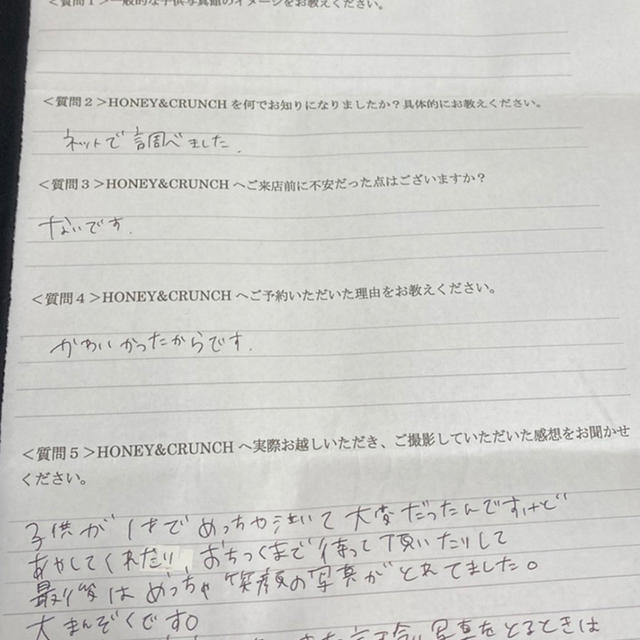 <質問1>一般的な子供写真館のイメージをお教えください。
<質問2>HONEY&CRUNCHを何でお知りになりましたか？具体的にお教えください。
ネットで調べました。
<質問3>HONEY&CRUNCHへご来店前に不安だった点はございますか？
ないです。
<質問4>HONEY&CRUNCHへご予約いただいた理由をお教えください。
かわいかったからです。
<質問5>HONEY&CRUNCHへ実際お越しいただき、ご撮影していただいた感想をお聞かせ
ください。
子供が1才でめっちゃ泣いて大変だったんですけど
あやしてくれたり、おちつくまで待って頂いたりして
最後はめっちゃ笑顔の写真がとれてました。
大まんぞくです。
写真をとるときは